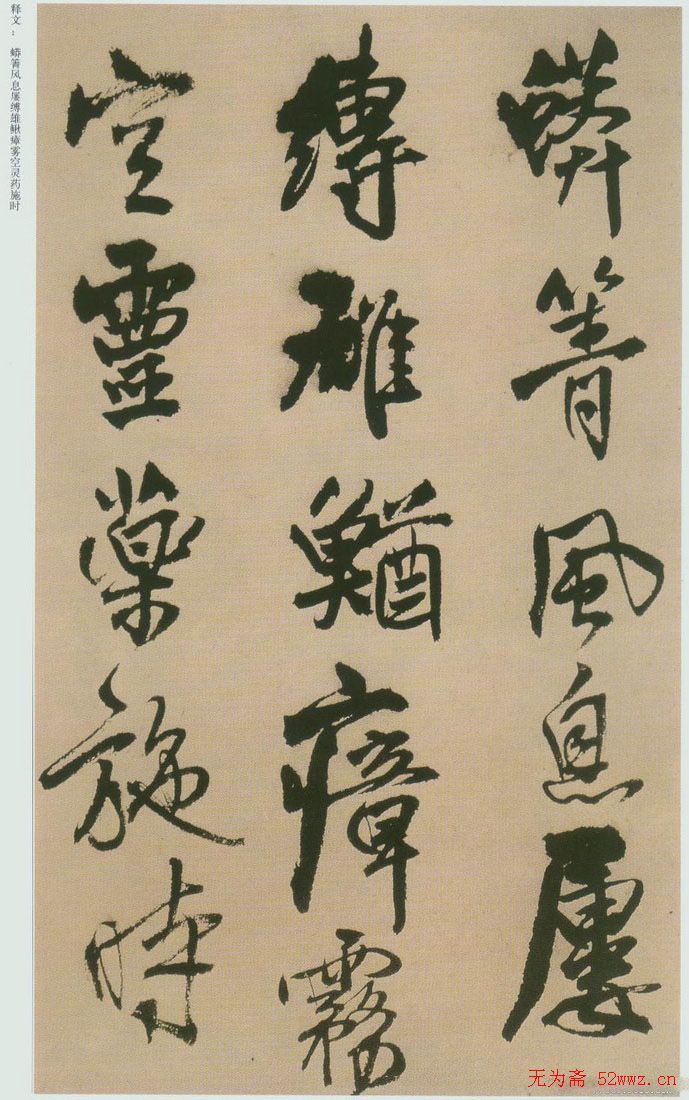 释文：蟒箐风息屡缚雄鳅瘴雾空灵药施时
蟒箐風息屢
縛雄鰌瘴霧
空靈藥施時
无为斋 52wwz.cn